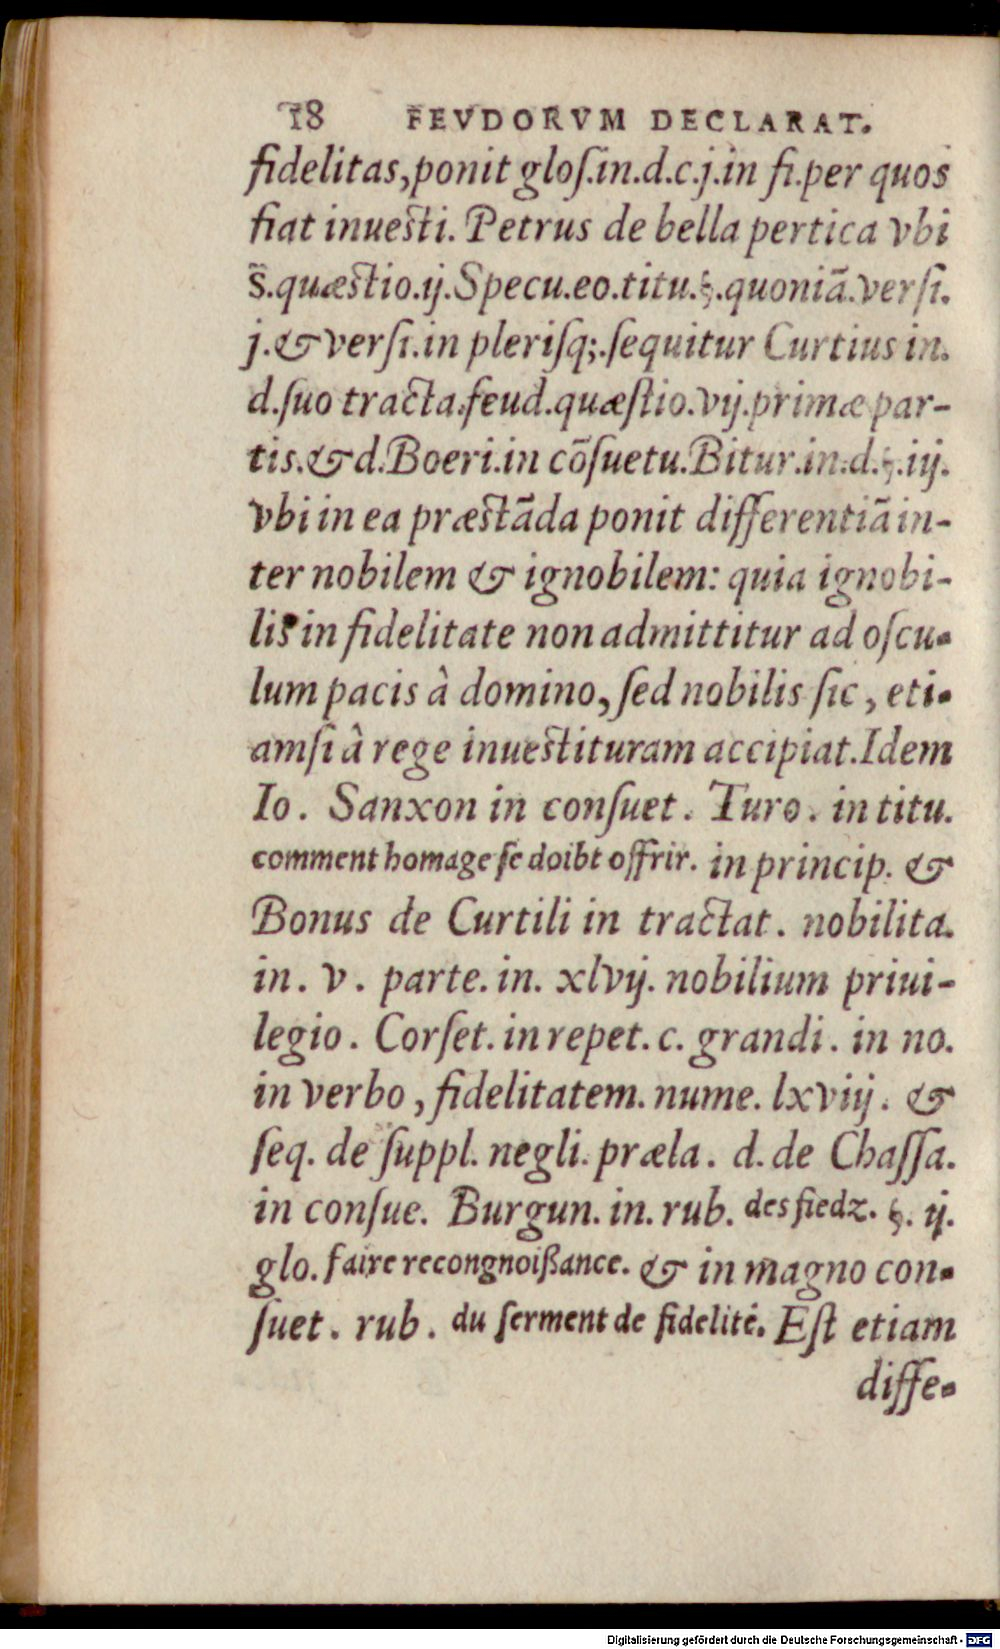 18 FEVDORVM DECLARAT.
fidelitas,ponit gloſ.in.d.c.j.in fi.per quos
fiat inueſti. Petrus de bella pertica vbi
s̃.quæſtio.ij.Specu.eo.titu.§.quoniã.verſi.
j.&verſi.in pleriſq;.ſequitur Curtius in.
d.ſuo tracta.feud.quæſtio.vij.primæ par-
tis.&d.Boeri.in cõſuetu.Bitur.in.d.§.iij.
vbi in ea præſtãda ponit differentiã in-
ter nobilem & ignobilem: quia ignobi-
lis in fidelitate non admittitur ad oſcu-
lum pacis à domino, ſed nobilis ſic, eti-
amſi à rege inueſtituram accipiat.Idem
Io. Sanxon in conſuet. Turo. in titu.
comment homage ſe doibt offrir. in princip. &
Bonus de Curtili in tractat. nobilita.
in. v. parte. in. xlvij. nobilium priui-
legio. Corſet. in repet. c. grandi. in no.
in verbo, fidelitatem. nume. lxviij. &
ſeq. de ſuppl. negli. præla. d. de Chaſſa.
in conſue. Burgun. in. rub. des fiedz. §. ij.
glo. faire recongnoißance. & in magno con-
ſuet. rub. du ſerment de fidelité. Eſt etiam
diffe-
Digitalisierung gefördert durch die Deutsche Forschungsgemeinschaft - DFG